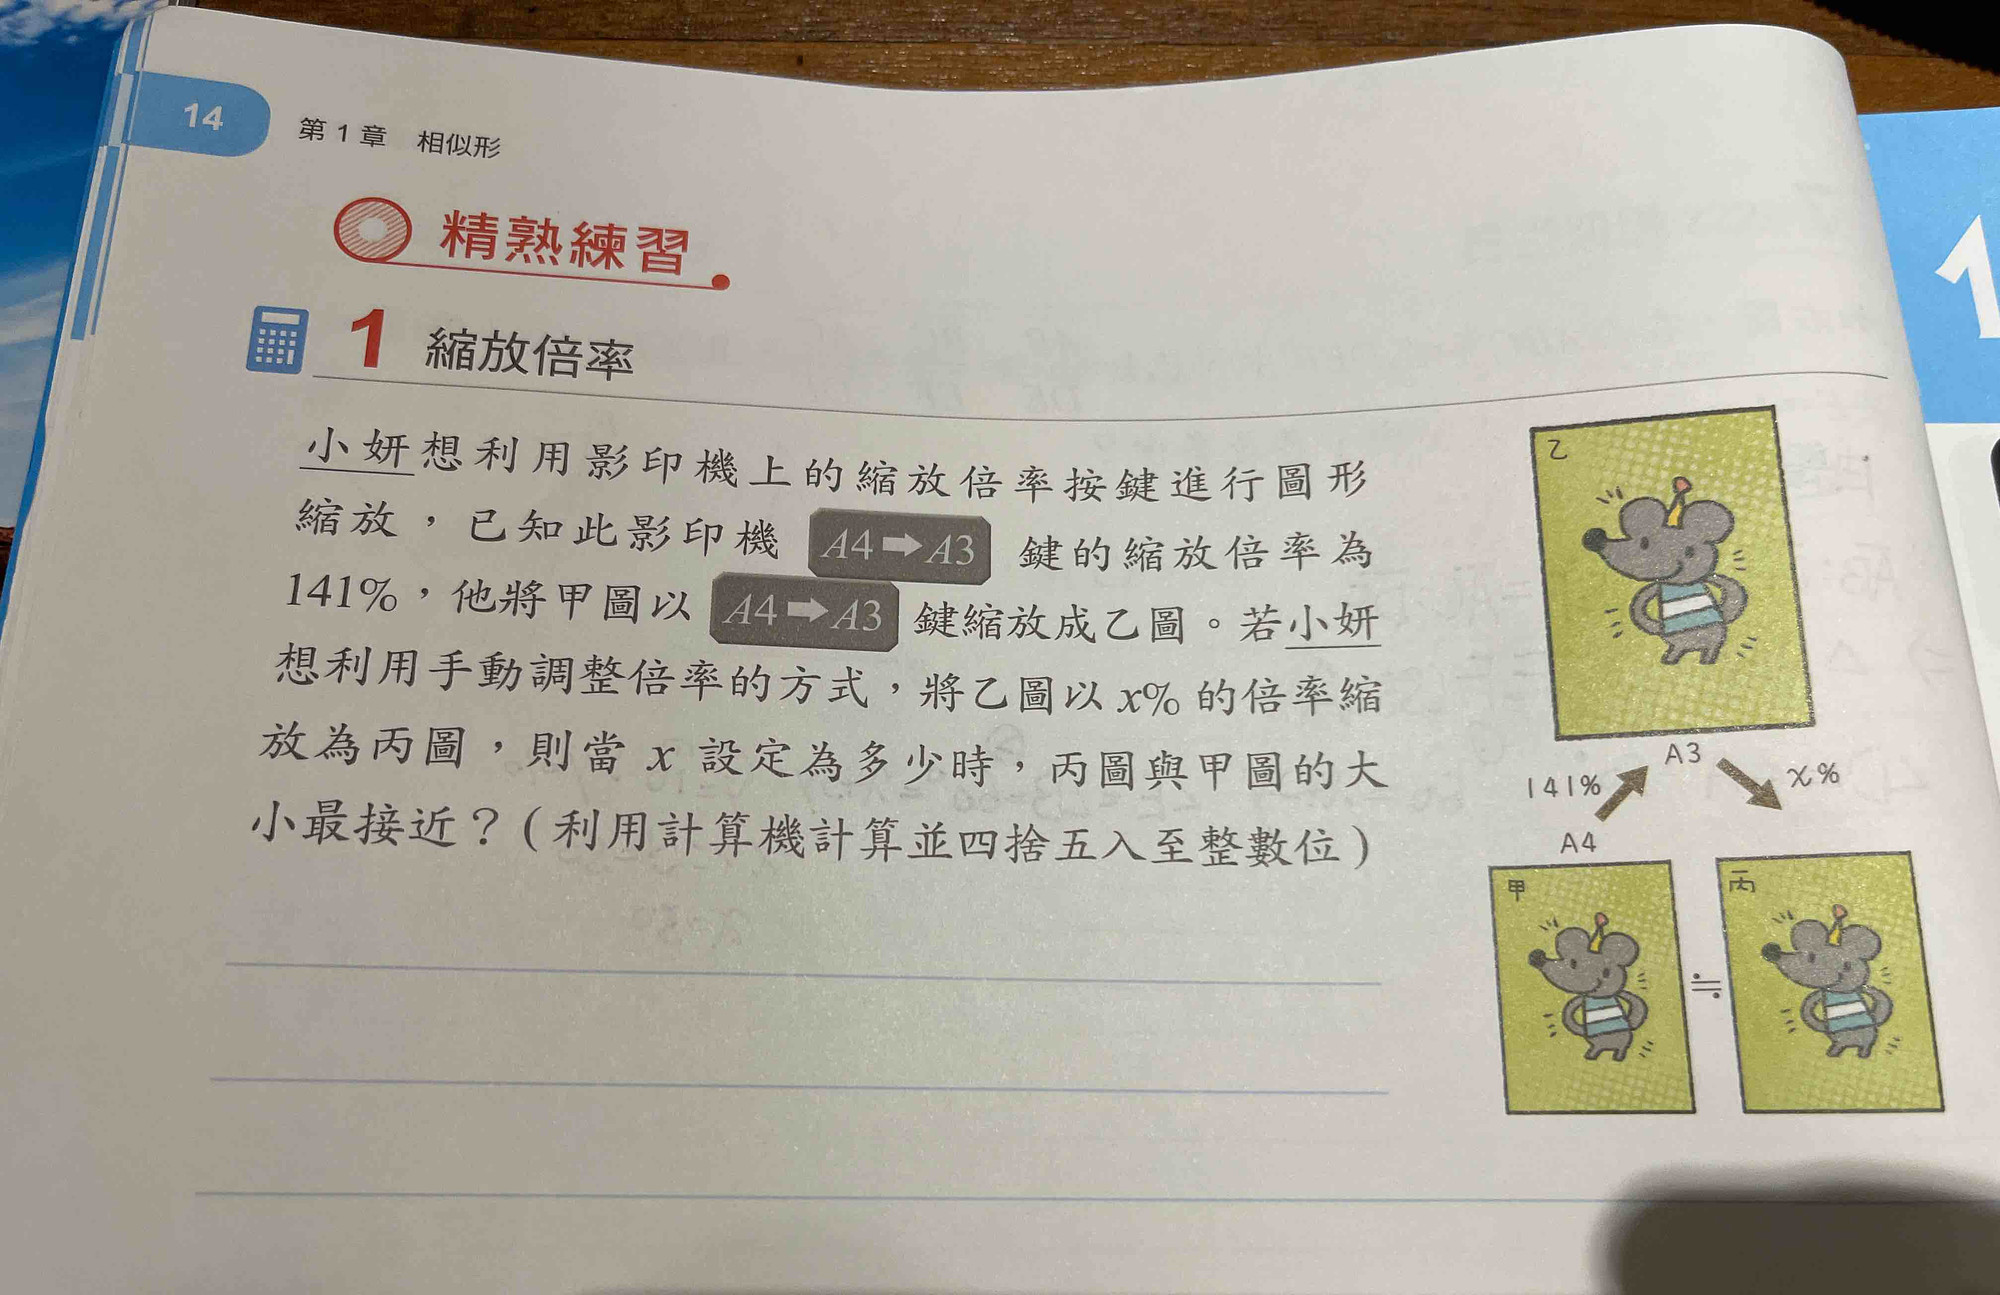 14
第1章 相似形
精熟練習
1 縮放倍率
小妍想利用影印機上的縮放倍率按鍵進行圖形
縮放,已知此影印機 A4➡A3 鍵的縮放倍率為
141%,他將甲圖以 A4➡A3 鍵縮放成乙圖。若小妍
想利用手動調整倍率的方式,將乙圖以 x% 的倍率縮
放為丙圖,則當 x 設定為多少時,丙圖與甲圖的大
小最接近?(利用計算機計算並四捨五入至整數位)
乙
A3
141%
x%
A4
甲
≒
丙
1